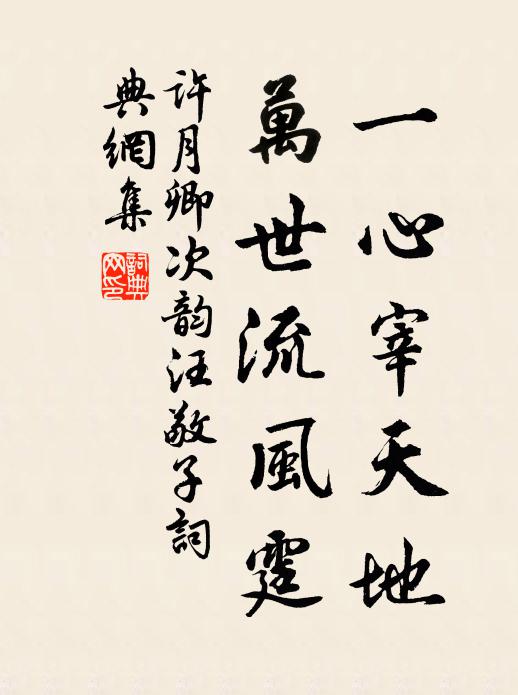 一心宰天地
萬世流風霆
許月卿次韵汪敬子詞
典網集
詞典網印